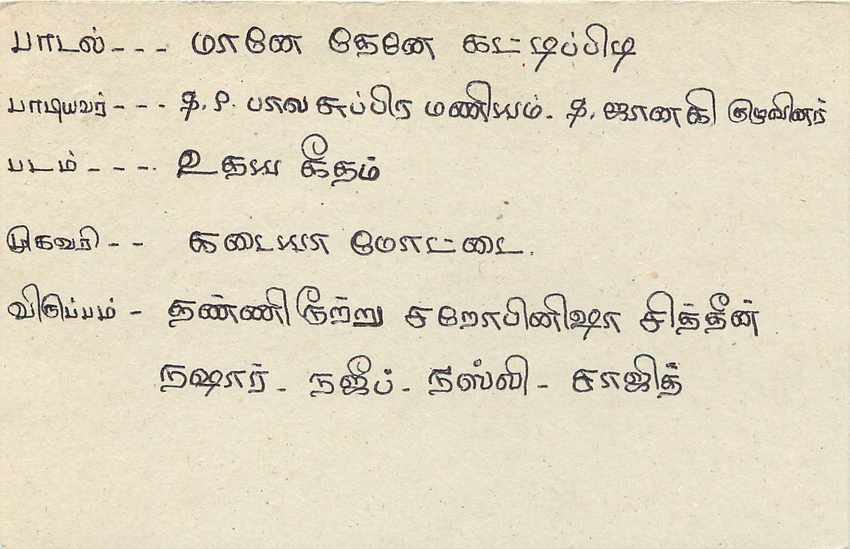 பாடல் - - - மானே தேனே கட்டிப்பிடி
பாடியவர் - - - . S. P. பாலசுப்பிரமணியம். S. ஜானகி குழுவினர்
படம் - - - . உதய கீதம்
முகவரி - - கடையா மோட்டை.
விருப்பம் - தண்ணிநீற்று சறோபினிஷா சித்தீன்
நஷார் - நஜீப் - நஸ்லி - சாஜித்